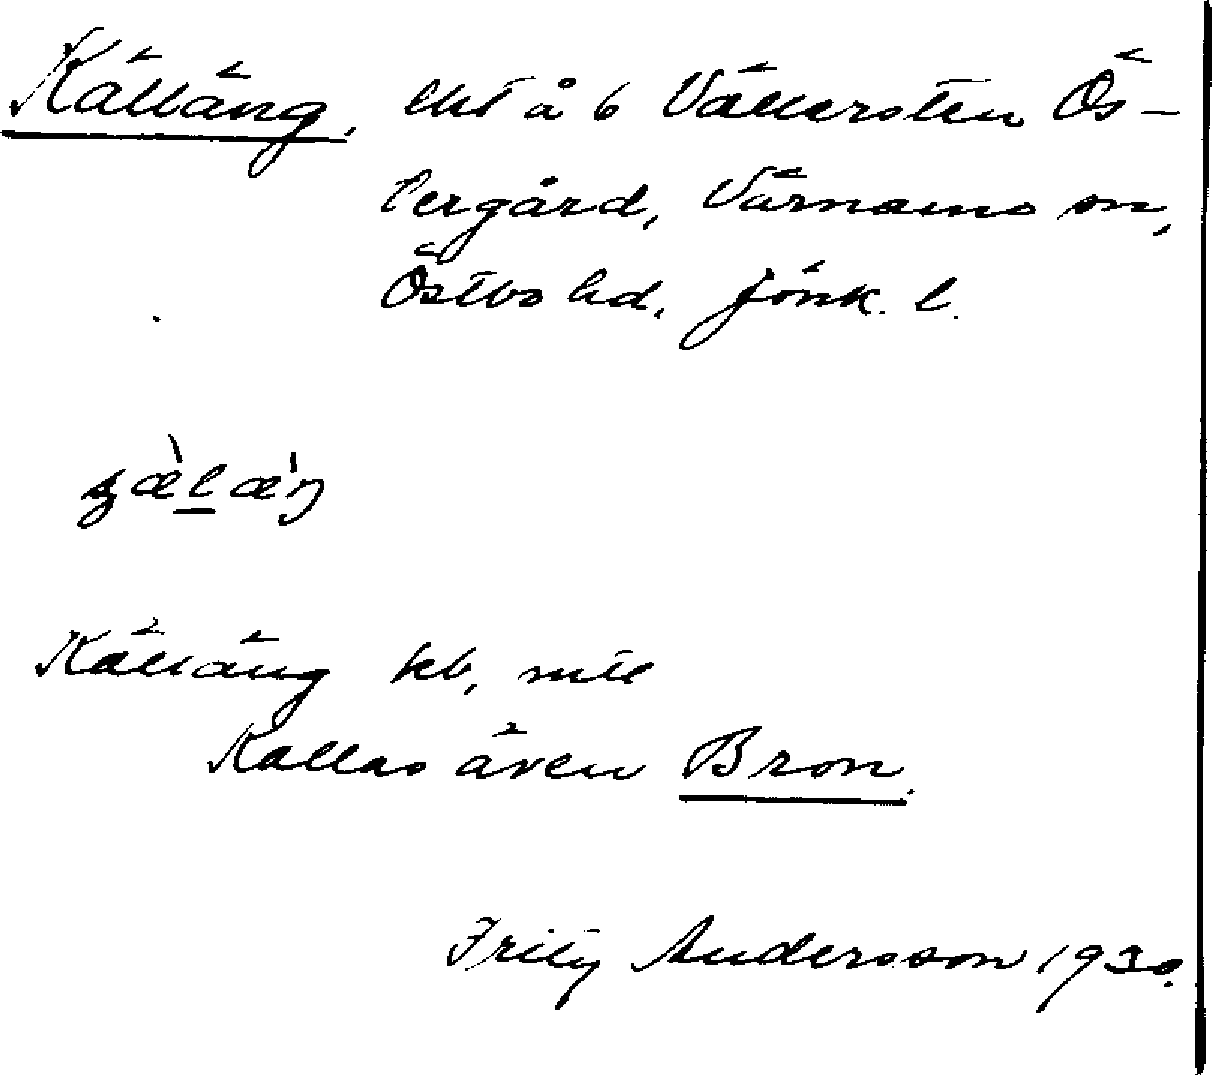 Källäng, lht å 6 Vällersten Ös-
tergård, Värnamo sn,
Östbo hd, Jönk. l.
Källäng kb, mtl
Kallas även Bron.
Fritz Andersson 1930.